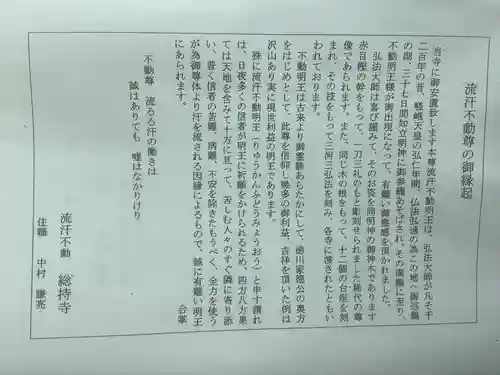 流汗不動尊の御縁起
当寺に御安置致します本尊流汗不動明王は、弘法大師が凡そ千
二百年の昔、嵯峨天皇の弘仁年間、仏法弘通の為この地へ御巡錫
の砌、三十七日間知立明神に御参籠あそばされ、その満願に至り、
不動明王様が御出現になって、有難い御霊感を頂かれました。
弘法大師は喜び謹みて、そのお姿を同明神の御神木であります
赤目樫の幹をもって、一刀三礼のもと彫刻せられました稀代の尊
像であられます。また、同じ木の根をもって、十二個の台座を刻
まれ、その枝をもって三河三弘法を刻み、各寺に渡されたともい
われております。
不動明王は古来より御霊験あらたかにして、徳川家徳公の奥方
をはじめとして、此尊を信仰し幾多の御利益、吉祥を頂いた例は
沢山あり実に現世利益の明王であります。
殊に流汗不動明王（りゅうかんふどうみょうおう）と申す謂れ
は、日夜多くの信者が明王に祈願をかけられるため、四方八方果
ては天地を含みて十方に亘って、苦しむ人々のすぐ隣に寄り添
い、普く信者の苦難、病難、不安を除きたもうべく、全力を使う
が為御尊体より汗を流される因縁によるもので、誠に有難い明王
にあられます。
合掌
不動尊 流るる汗の働きは
誠はありても 嘘はなかりけり
流汗不動 総持寺
住職 中村 謙亮